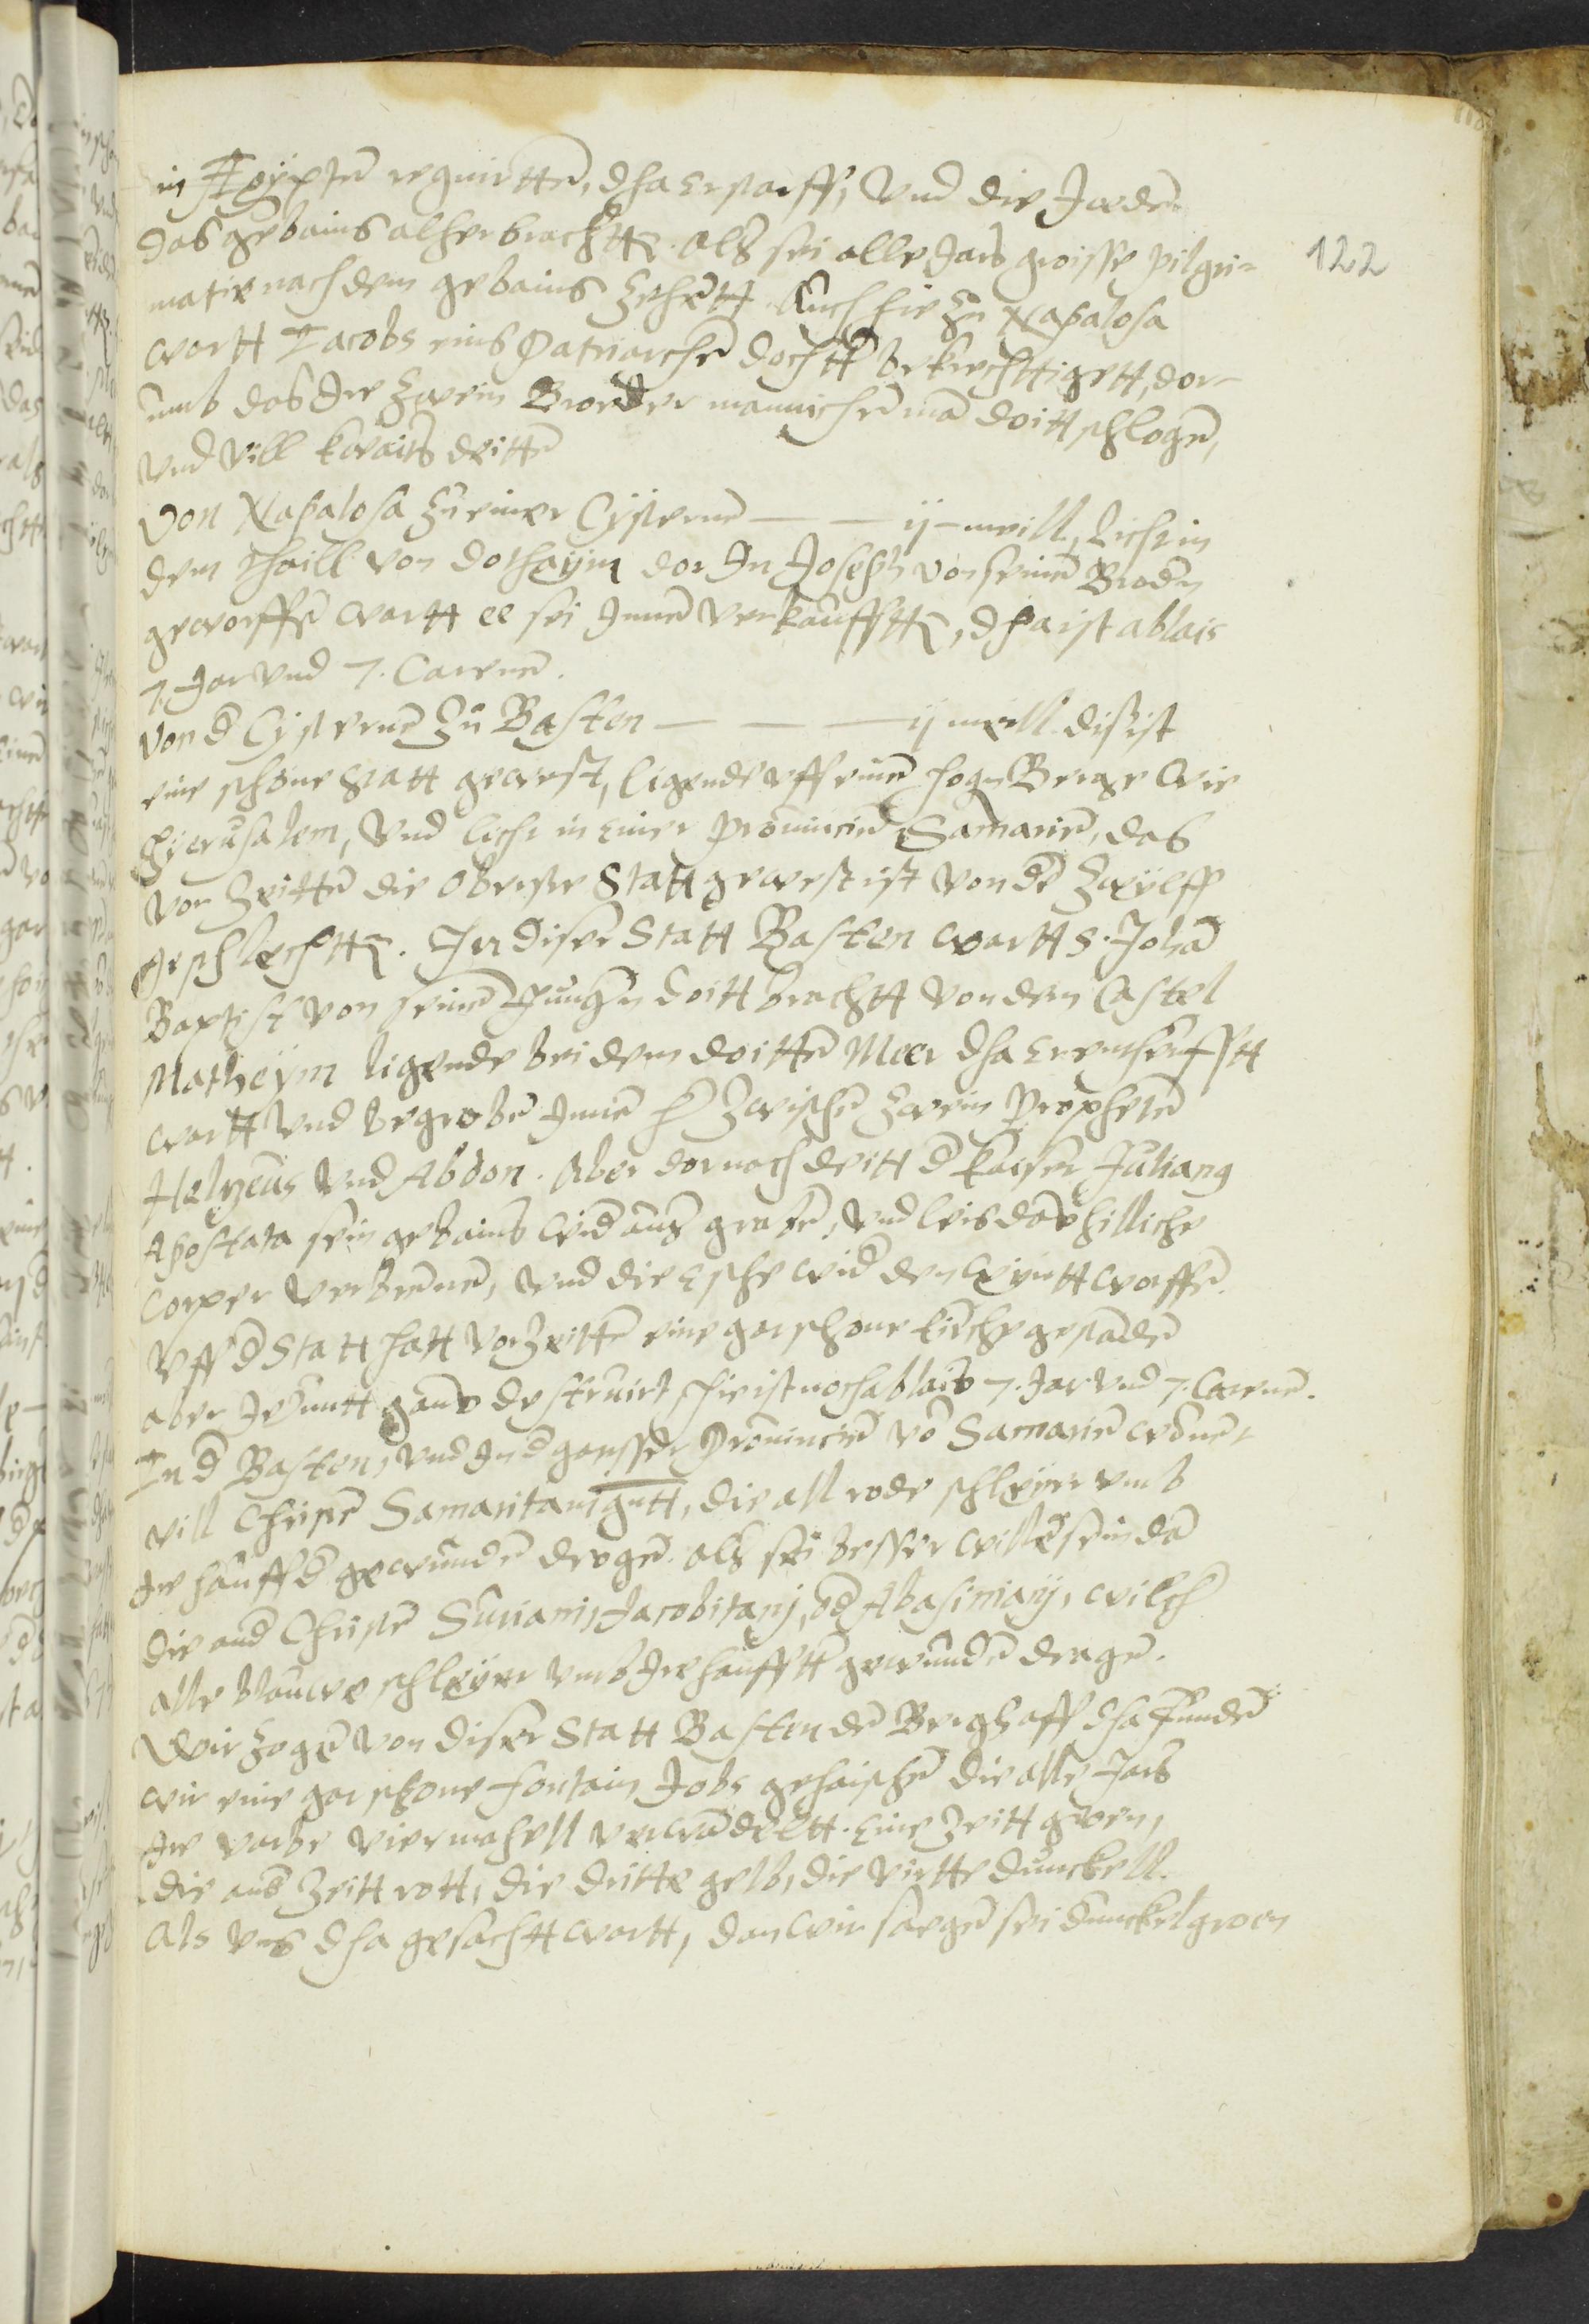 in Egÿpten regnirtten, dha er starff, Vnd die Joeden
das gebains alher brachtten. Als sei alle Jars groisse pilgri-
matie nach dem gebains zehett. Auch hie zu Napalosa
wartt Jacobs eins Patriarchen dochtt bekrechttigett, dar-
umb das Ire zwein Broeder mannichen man doitt schlogen,
Vnd vill kwaitz ditten
Von Napalosa zu einer Cysternen — — ij meill, licht in
dem thaill von Dothaÿm dar In Joseph von seinen Brodern
geworffen wartt ee sei Innen verkaufftten, dha ist ablais
7. Jar vnd 7. Carenen.
Von d Cysternen zu Basten — — — ij meill. dis ist
eine schone Statt gewest, ligende vff einem hogen Berge wie
Hyerusalem, Vnd licht in einer Prouincien Samarien, das
vor Zeitten die Oberste Statt gewest ist von den zwÿlff
geschlechtten. In diser Statt Basten wartt S. Johan
Baptist von seinen Jungern doitt bracht von dem Castel
Matheÿm ligende bei dem doitten Meer dha er entheufftt
wartt vnd begroben Innen h zwischen zwein Propheten
Helyeus vnd Abdon. Aber dornach deitt d kaiser Julianus
Apostata sein gebains wid aus graben, vnd leis das hilliche
Corper verbrennen, vnd die esche wid den wyntt worffen.
Vff d Statt hatt vorzeitten eine gar schone kirche gestanden
aber Jetzuntt gans destruirt hie ist noch ablais 7. Jar vnd 7. Carenen.
In d Basten, vnd In d gantzser Prouincien von Samarien wonen
vill Christen Samaritani gntt, die all rode schleyer vmb
Ire hauffd gewunden dragen. als sei besser willen sein dan
die and Christen Suriani, Jacobitanj, od Abasiniaij, wilch
alle blauwe schleÿer vmb Ire haufftt gewunden dragen.
Wir zogen von diser Statt Basten den Berg haff dha funden
wir eine gar schone fontain Jobs gehaischen die alle Jars
Ire varbe viermahell verwandeltt. Eine zeitt groen,
die ander zeitt rott, die dritte gelb, die viertte dunckell.
Als vns dha gesachtt wartt, dan wir saegen sei dunckelgroen
122